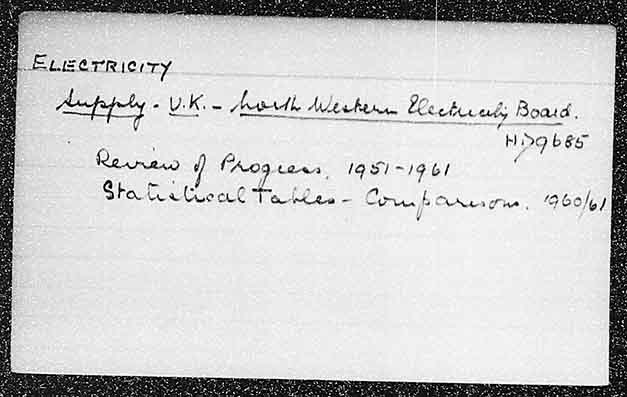 ELECTRICITY
Supply - U.K. - North Western Electricity Board.
HD9685
Review of Progress, 1951-1961
Statistical Tables - Comparisons. 1960/61